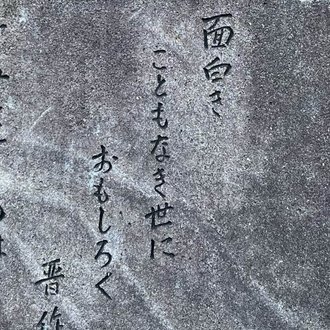 面白き
こともなき世に
おもしろく
晋作